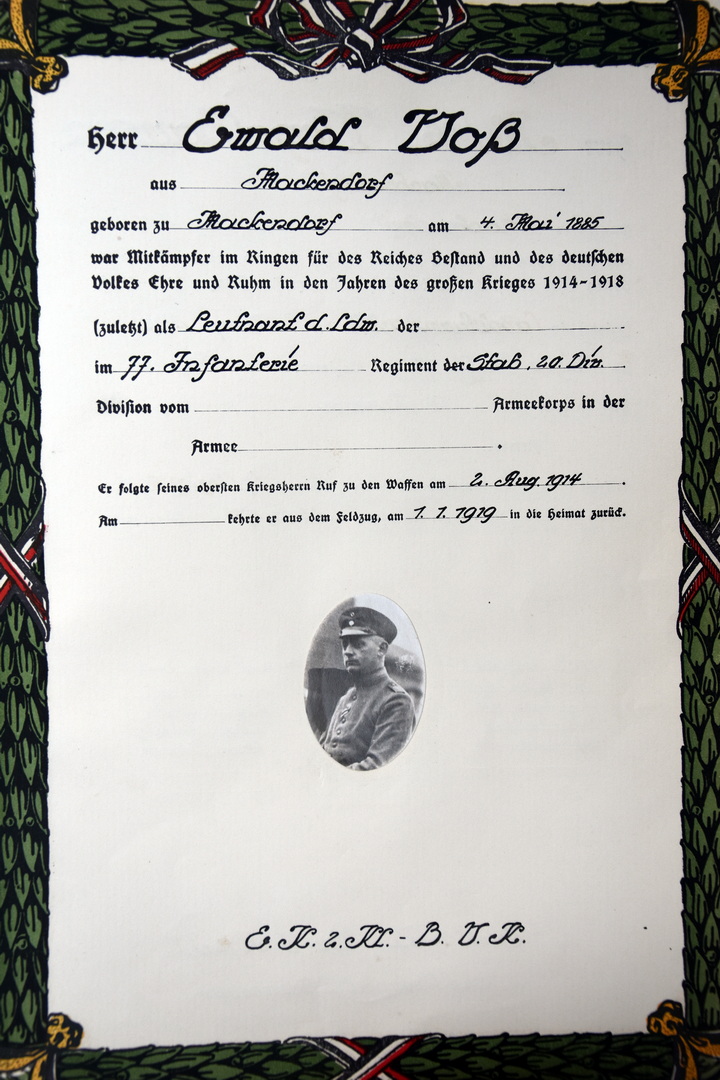 Herr Ewald Voß
aus Mackendorf
geboren zu Mackendorf am 4. Mai 1885
war Mitkämpfer im Ringen für des Reiches Bestand und des deutschen
Volkes Ehre und Ruhm in den Jahren des großen Krieges 1914-1918
(zuletzt) als Leutnant d. Ldw. der
im 77. Infanterie Regiment der Stab, 20. Div.
Division vom Armeekorps in der
Armee .
Er folgte seines obersten Kriegsherrn Ruf zu den Waffen am 2. Aug. 1914 .
Am kehrte er aus dem Feldzug, am 1. 1. 1919 in die Heimat zurück.
E. K. 2. Kl. - B. V. K.